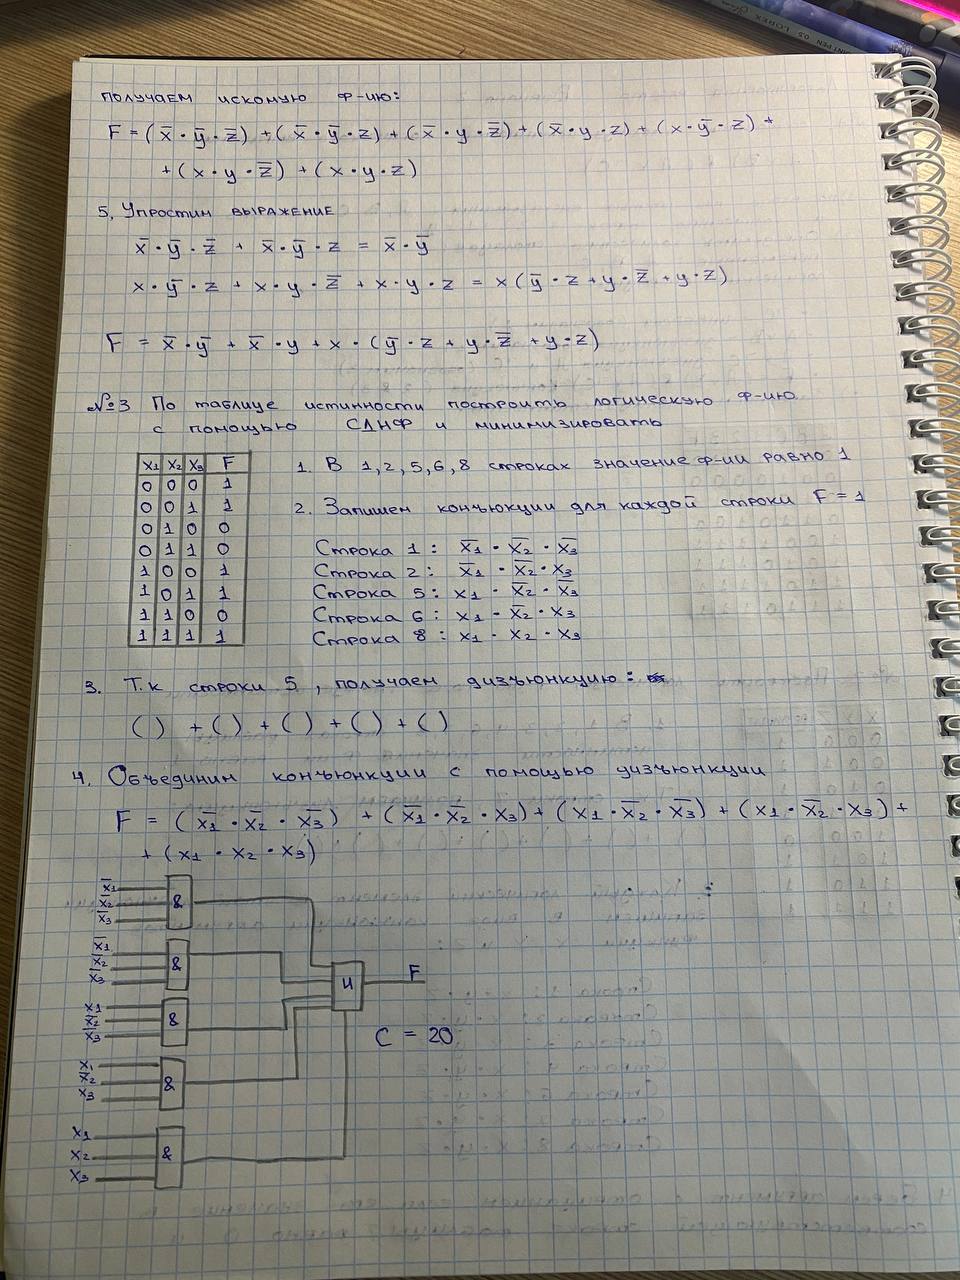 получаем искомую ф-ию:
F = (x̅ · y̅ · z̅) + (x̅ · y̅ · z) + (x̅ · y · z̅) + (x̅ · y · z) + (x · y̅ · z) +
+ (x · y · z̅) + (x · y · z)
5, Упростим выражение
x̅ · y̅ · z̅ + x̅ · y̅ · z = x̅ · y̅
x · y̅ · z + x · y · z̅ + x · y · z = x (y̅ · z + y · z̅ + y · z)
F = x̅ · y̅ + x̅ · y + x · (y̅ · z + y · z̅ + y · z)
№3 По таблице истинности построить логическую ф-ию
с помощью СДНФ и минимизировать
x₁ x₂ x₃ F
0 0 0 1
0 0 1 1
0 1 0 0
0 1 1 0
1 0 0 1
1 0 1 1
1 1 0 0
1 1 1 1
1. В 1, 2, 5, 6, 8 строках значение ф-ии равно 1
2. Запишем конъюкции для каждой строки F = 1
Строка 1 : x̅₁ · x̅₂ · x̅₃
Строка 2 : x̅₁ · x̅₂ · x₃
Строка 5 : x₁ · x̅₂ · x̅₃
Строка 6 : x₁ · x̅₂ · x₃
Строка 8 : x₁ · x₂ · x₃
3. Т.к строки 5 , получаем дизъюнкцию :
( ) + ( ) + ( ) + ( ) + ( )
4. Объединим конъюнкции с помощью дизъюнкции
F = (x̅₁ · x̅₂ · x̅₃) + (x̅₁ · x̅₂ · x₃) + (x₁ · x̅₂ · x̅₃) + (x₁ · x̅₂ · x₃) +
+ (x₁ · x₂ · x₃)
x̅₁
x̅₂
x̅₃
&
x̅₁
x̅₂
x̅₃
&
x₁
x̅₂
x̅₃
&
x₁
x̅₂
x₃
&
x₁
x₂
x₃
&
И
F
C = 20